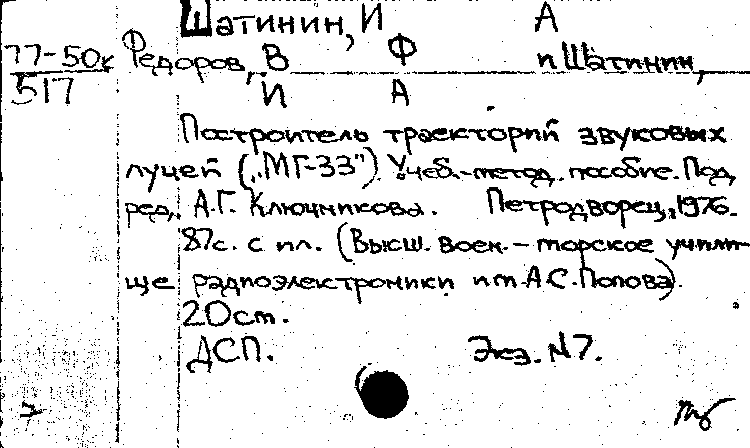 Шатинин, И А
77-50к Федоров, В Ф и Шатинин,
517 И А
Построитель траекторий звуковых
лучей („МГ-33") Учеб.-метод. пособие. Под
ред. А.Г. Ключникова. Петродворец, 1976.
87с. с ил. (Высш. воен.-морское учили-
ще радиоэлектроники им. А.С. Попова).
20см.
ДСП. Экз. №7.